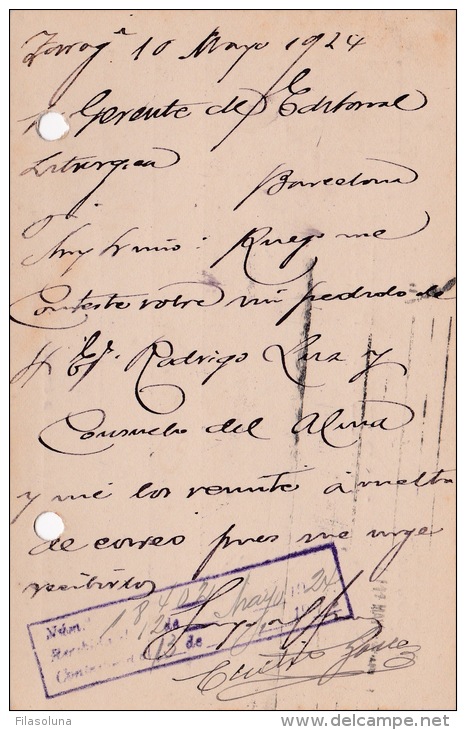 Zaragª 10 Mayo 1924
Gerente de Editorial
Liturgica
Barcelona
Muy Sr mio: Ruego me
Conteste sobre mi pedido de
Ej. Rodrigo Luz y
Consuelo del Alma
y me los remite á vuelta
de correo pues me urge
recibirlos
Núm. 18402
Recibido el 12 de Mayo 1924
Contestado el 13 de
Filasoluna
www.delcampe.net